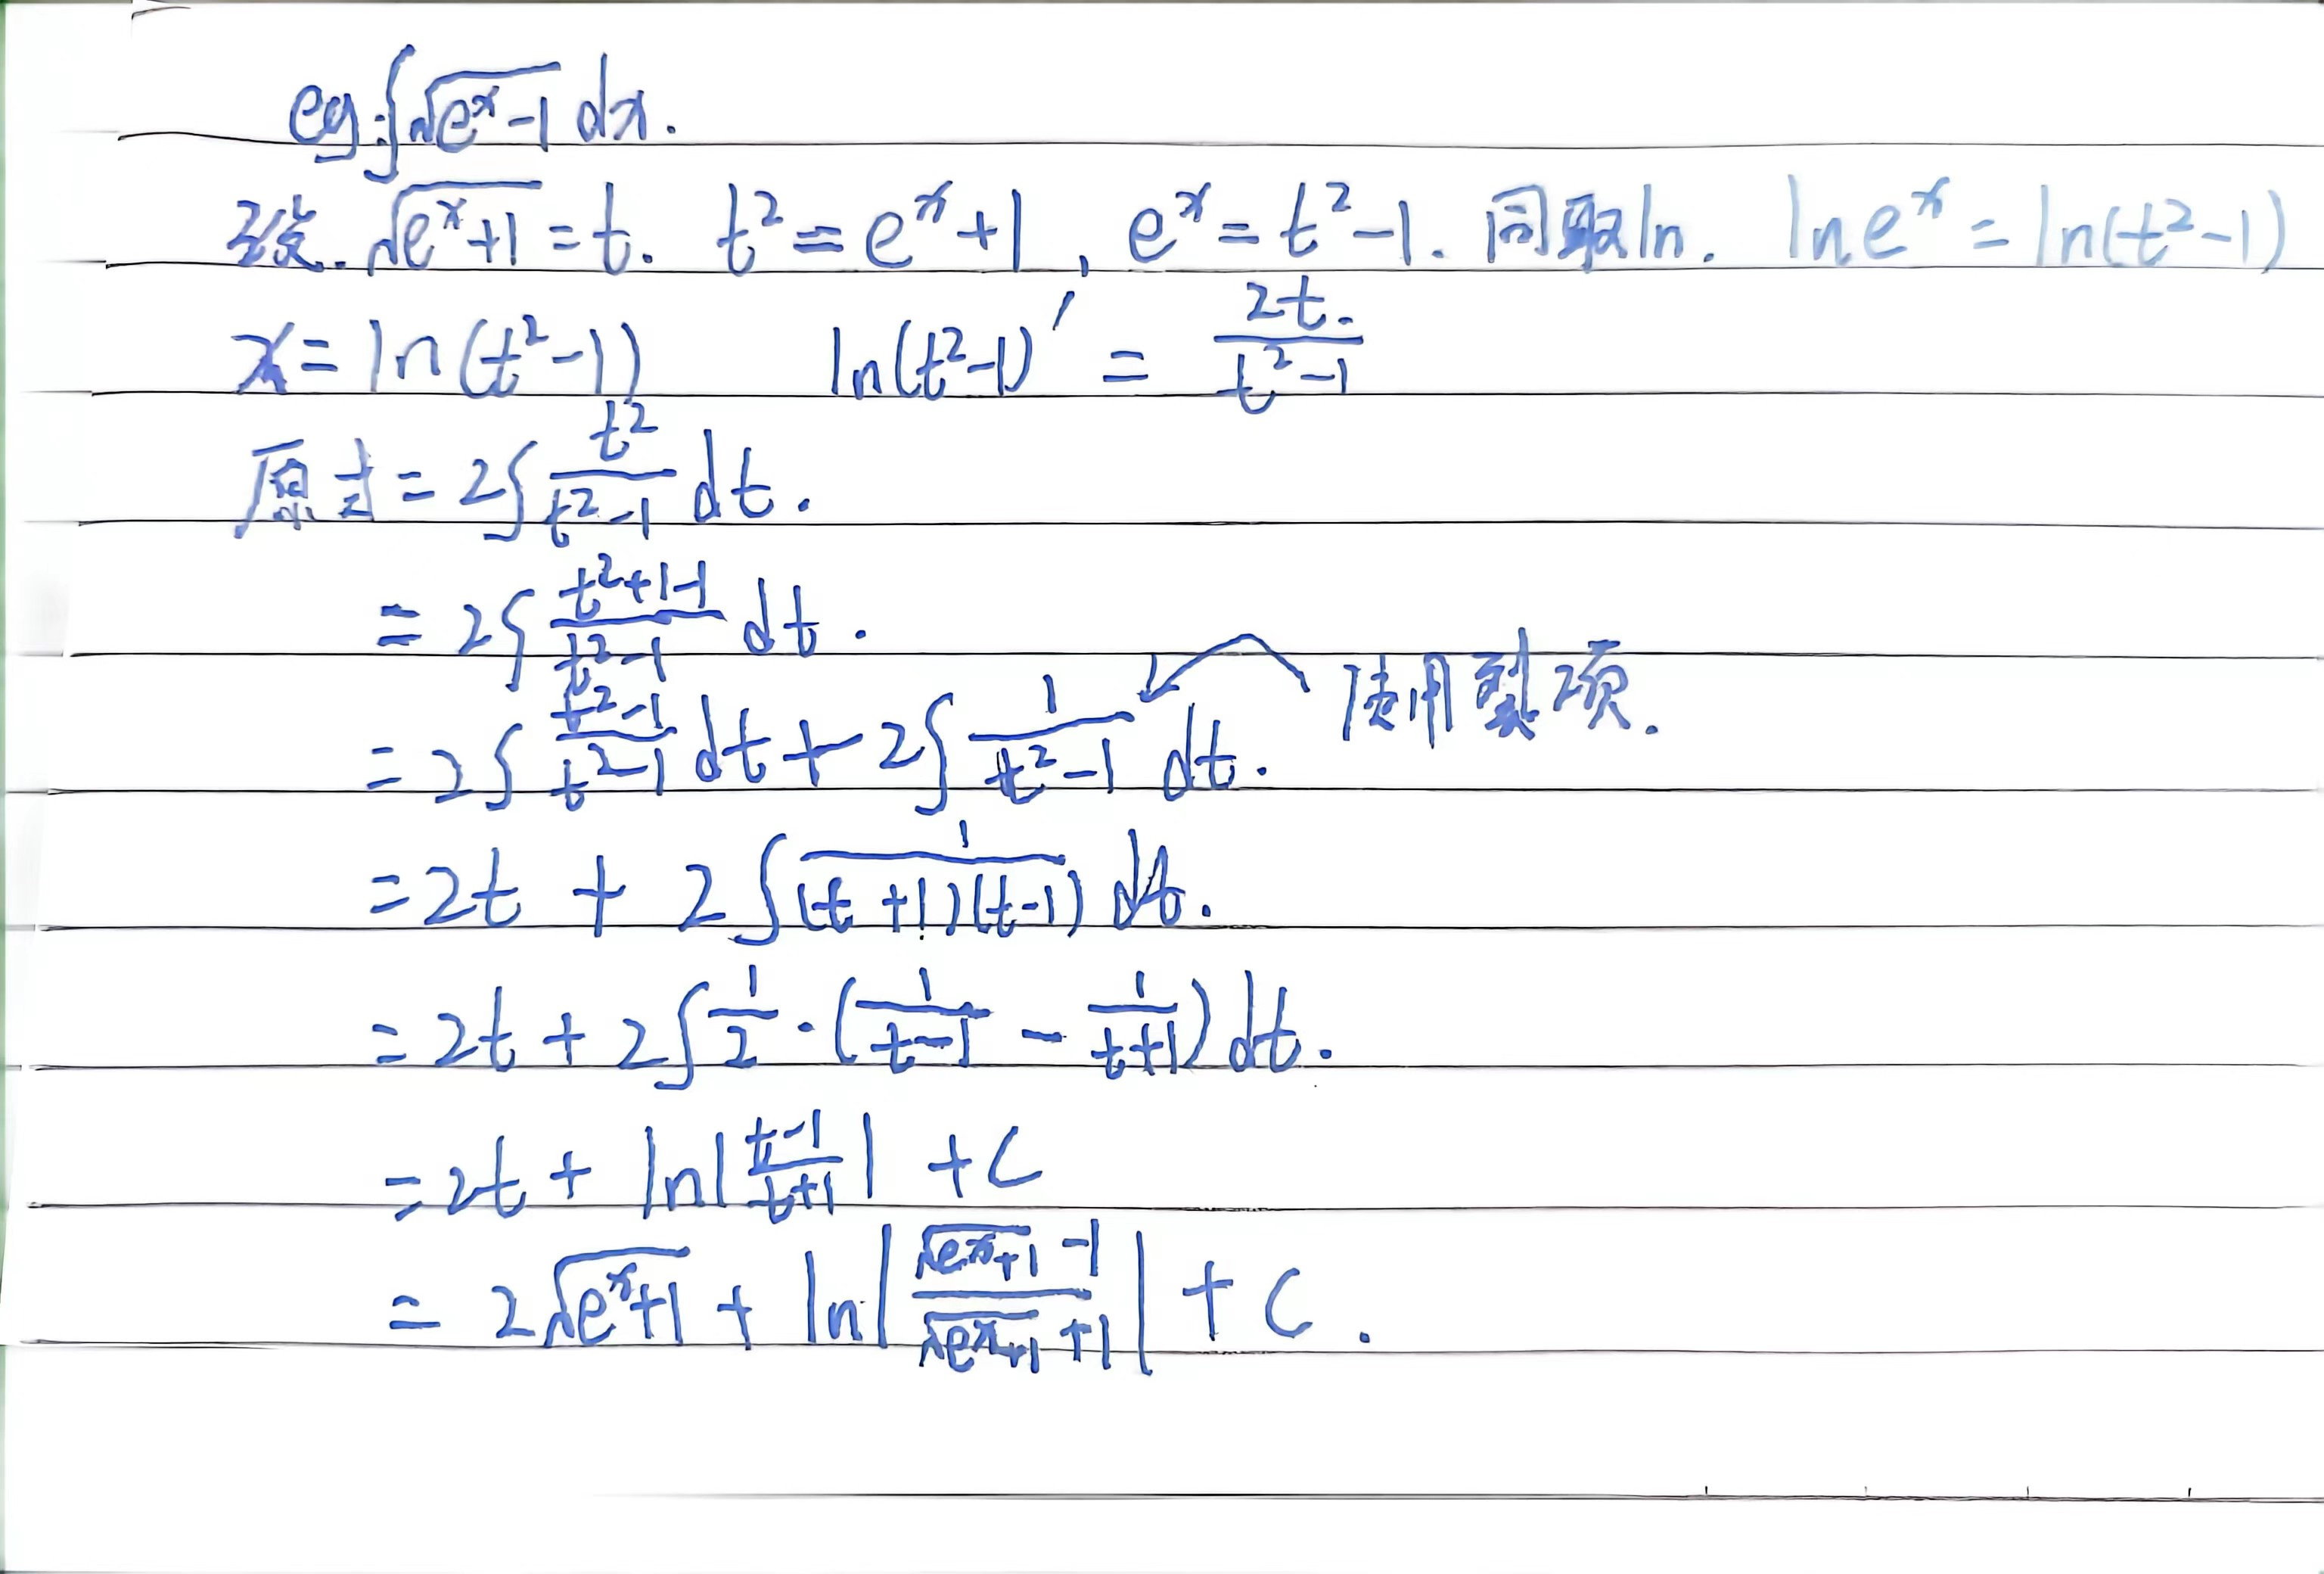 eg: ∫√(eˣ-1) dx.
设. √(eˣ+1) = t. t² = eˣ+1, eˣ = t²-1. 同取ln. lneˣ = ln(t²-1)
x = ln(t²-1) ln(t²-1)′ = 2t./(t²-1)
原式 = 2∫ t²/(t²-1) dt.
= 2∫ (t²+1-1)/(t²-1) dt.
= 2∫ (t²-1)/(t²-1) dt + 2∫ 1/(t²-1) dt. 使用裂项.
= 2t + 2∫ 1/((t+1)(t-1)) dt.
= 2t + 2∫ 1/2 · (1/(t-1) - 1/(t+1)) dt.
= 2t + ln|(t-1)/(t+1)| + C
= 2√(eˣ+1) + ln|(√(eˣ+1) -1)/(√(eˣ+1) +1)| + C.